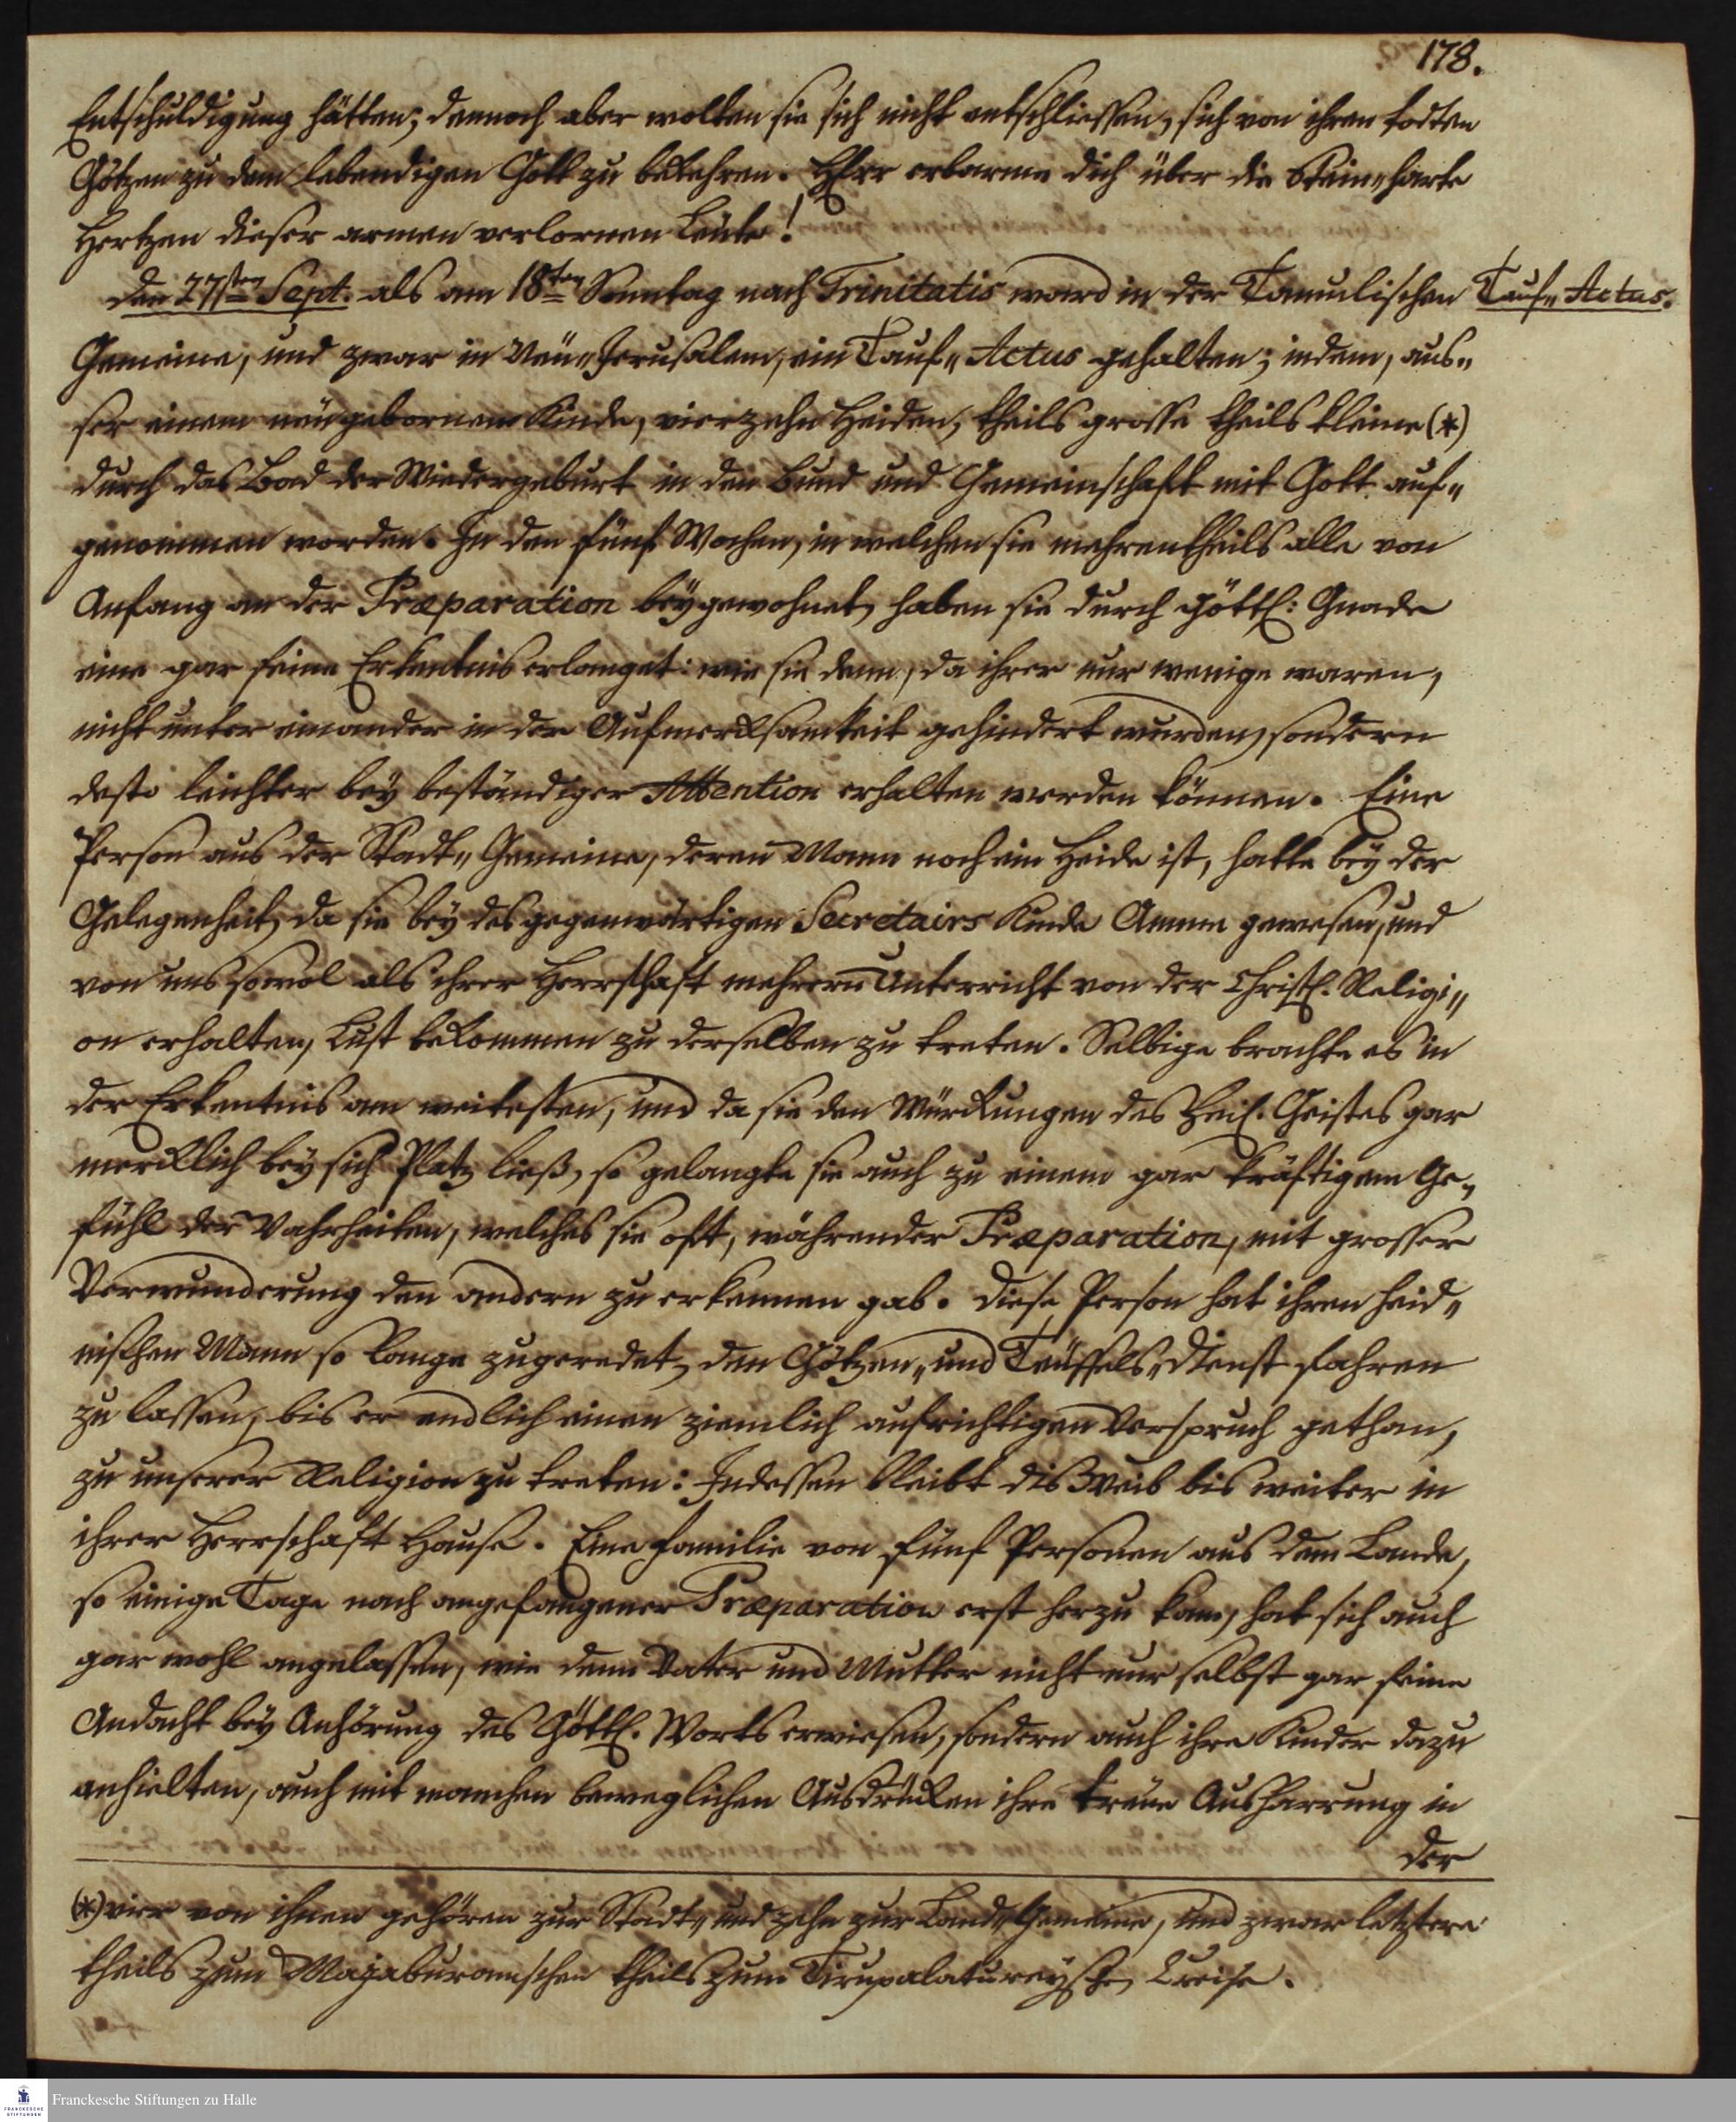 178.
Entschuldigung hätten; dennoch aber wolten sie sich nicht entschliessen, sich von ihren todten
Götzen zu dem lebendigen Gott zu bekehren. HErr erbarme dich über die Stein„harte
Hertzen dieser armen verlornen Leute!
den 27sten Sept. als am 18ten Sonntag nach Trinitatis ward in der Tamulischen
Tauf„Actus.
Gemeine, und zwar in Neu„Jerusalem, ein Tauf„Actus gehalten; indem, aus„
ser einem neugebornem Kinde, vierzehn Heiden, theils grosse theils kleine (*)
durch das Bad der Wiedergeburt in den Bund und Gemeinschaft mit Gott auf„
genommen worden. In den fünf Wochen, in welchen sie mehrentheils alle von
Anfang an der Præparation beygewohnet, haben sie durch göttl: Gnade
eine gar feine Erkentnis erlanget: wie sie denn, da ihrer nur wenige waren,
nicht unter einander in der Aufmercksamkeit gehindert wurden, sondern
desto leichter bey beständiger Attention erhalten werden können. Eine
Person aus der Stadt„Gemeine, deren Mann noch ein Heide ist, hatte bey der
Gelegenheit, da sie bey des gegenwärtigen Secretairs Kinde Amme gewesen, und
von uns sowol als ihrer Herrschaft mehrern Unterricht von der Christl. Religi„
on erhalten, Lust bekommen zu derselben zu treten. Selbige brachte es in
der Erkentnis am weitesten, und da sie den Würckungen des Heil. Geistes gar
mercklich bey sich Platz ließ, so gelangte sie auch zu einem gar kräftigem Ge„
fühl der Wahrheiten, welches sie oft, währender Præparation, mit grosser
Verwunderung den andern zu erkennen gab. Diese Person hat ihren heid„
nischen Mann so lange zugeredet, den Götzen„und Teuffels„dienst fahren
zu lassen, bis er endlich einen ziemlich aufrichtigen Verspruch gethan,
zu unserer Religion zu treten: Indessen bleibt diß Weib bis weiter in
ihrer Herrschaft Hause. Eine familie von fünf Personen aus dem Lande,
so einige Tage nach angefangener Præparation erst herzu kam, hat sich auch
gar wohl angelassen, wie denn Vater und Mutter nicht nur selbst gar feine
Andacht bey Anhörung des Göttl. Worts erwiesen, sondern auch ihre Kinder dazu
anhielten, auch mit manchen beweglichen Ausdrücken ihre treue Ausharrung in
der
(*) vier von ihnen gehören zur Stadt„und zehn zur Land„Gemeine, und zwar letztere
theils zum Majaburamschen theils zum Tirupalatureyschen Creise.
Franckesche Stiftungen zu Halle
FRANCKESCHE
STIFTUNGEN